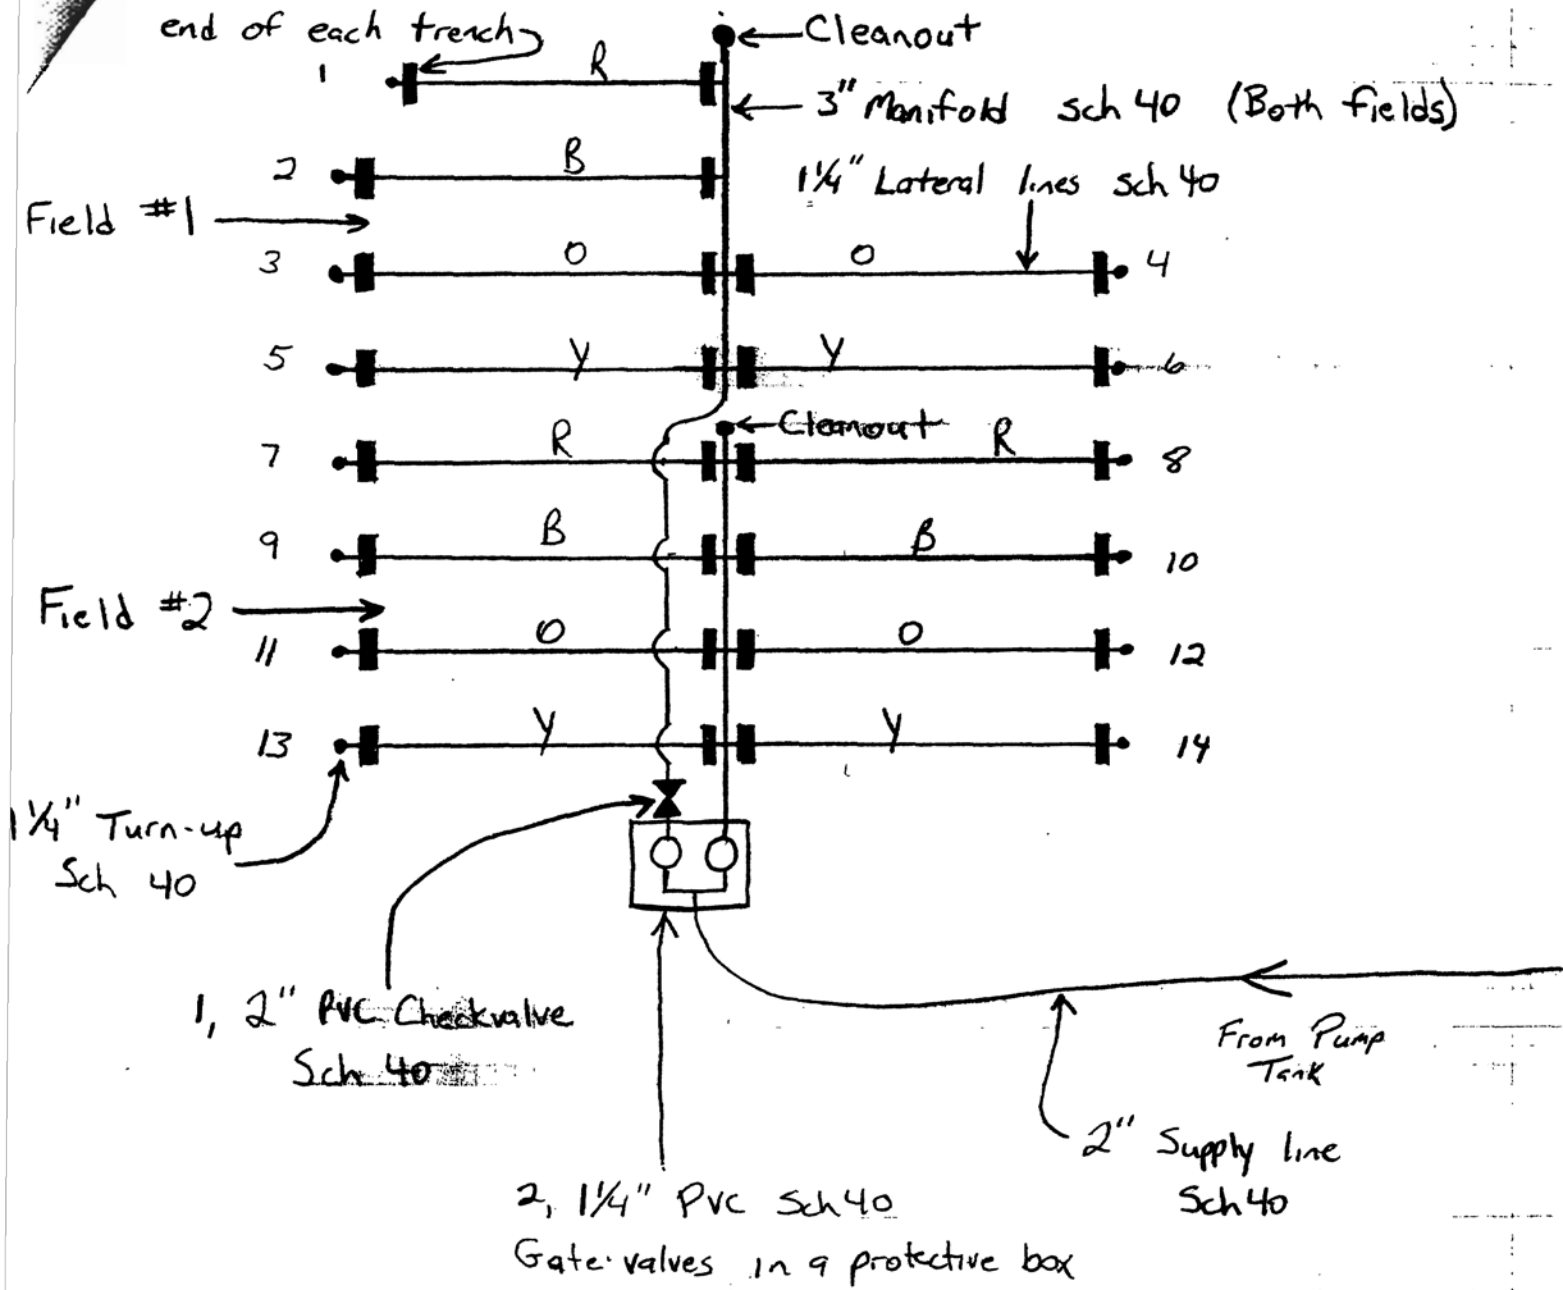 end of each trench
Cleanout
1
R
3" Manifold sch 40 (Both fields)
2
B
1¼" Lateral lines sch 40
Field #1
3
O
O
4
5
Y
Y
6
Cleanout
7
R
R
8
9
B
B
10
Field #2
11
O
O
12
13
Y
Y
14
1¼" Turn-up
Sch 40
1, 2" PVC Checkvalve
Sch 40
From Pump
Tank
2" Supply line
Sch 40
2, 1¼" PVC Sch 40
Gate valves in a protective box